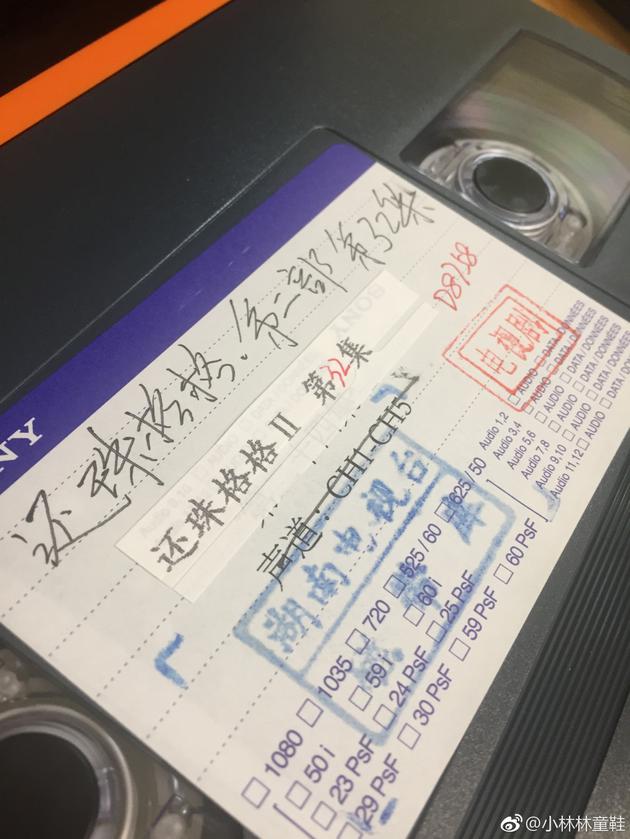 还珠格格.第二部第32集
SONY
还珠格格II 第32集
声道：CH1-CH5
D8768
电视剧
湖南电视台
Audio 1,2 □ AUDIO □ DATA / DONNÉES
Audio 3,4 □ AUDIO □ DATA / DONNÉES
Audio 5,6 □ AUDIO □ DATA / DONNÉES
Audio 7,8 □ AUDIO □ DATA / DONNÉES
Audio 9,10 □ AUDIO □ DATA / DONNÉES
Audio 11,12 □ AUDIO □ DATA / DONNÉES
□ 1080 □ 1035 □ 720 □ 525 / 60 □ 625 / 50
□ 50 i □ 59 i □ 60 i
□ 23 PsF □ 24 PsF □ 25 PsF
□ 29 PsF □ 30 PsF □ 59 PsF □ 60 PsF
@小林林童鞋